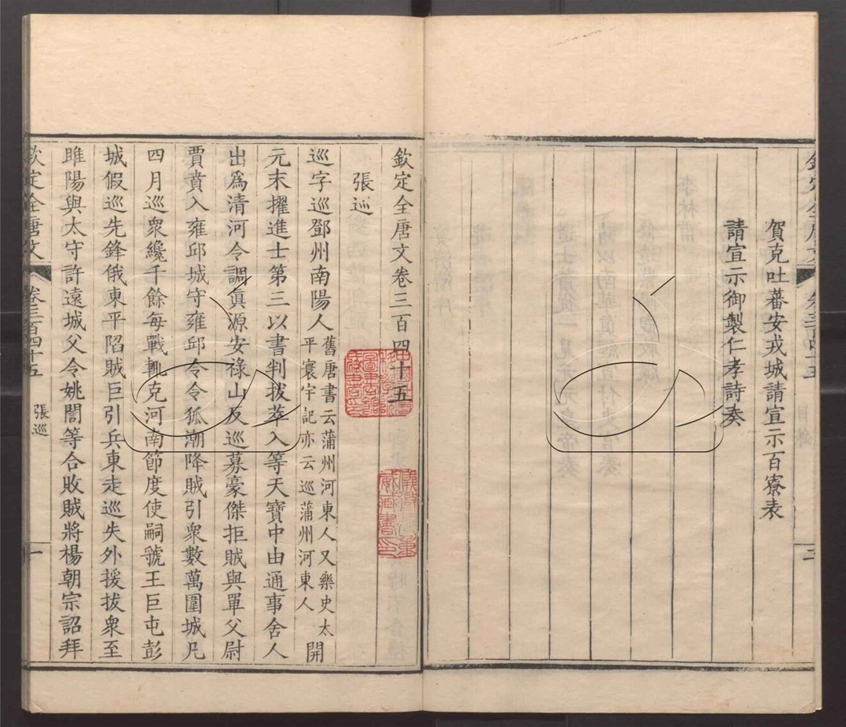 賀克吐蕃安戎城請宣示百寮表
請宣示御製仁孝詩奏
目錄
三
欽定全唐文卷三百四十五
張巡
巡字巡鄧州南陽人舊唐書云蒲州河東人又樂史太平寰宇記亦云巡蒲州河東人開
元末擢進士第三以書判拔萃入等天寶中由通事舍人
出為清河令調真源安祿山反巡募豪傑拒賊與單父尉
賈賁入雍邱城守雍邱令令狐潮降賊引衆數萬圍城凡
四月巡衆纔千餘每戰輒克河南節度使嗣虢王巨屯彭
城假巡先鋒俄東平陷賊巨引兵東走巡失外援拔衆至
睢陽與太守許遠城父令姚誾等合敗賊將楊朝宗詔拜
欽定全唐文
卷三百四十五
張巡
一